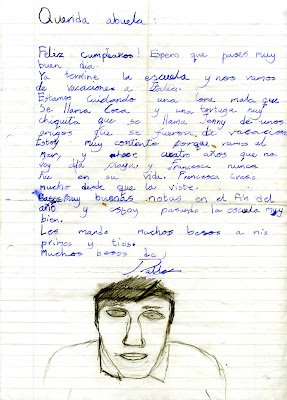 Querida abuela:
Feliz cumpleaños! Espero que pases muy
buen dia.
Ya termine la escuela y nos vamos
de vacaciones a Italia.
Estamos cuidando una lora mala que
se llama Coca y una tortuga muy
chiquita que se llama Jenny de unos
amigos que se fueron de vacacion
Estoy muy contento porque vamos al
mar, y hace cuatro años que no
voy ala playa y Francesca nunca
fue en su vida. Francesca crecio
mucho desde que la viste.
muy buenas notas en el fih del
año y estoy pasando la escuela muy
bien.
Les mando muchos besos a mis
primos y tios.
Muchos besos de,